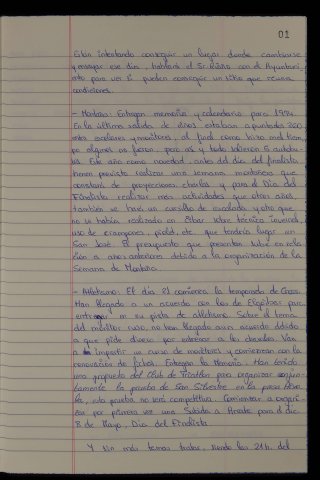 01
Están intentando conseguir un lugar donde cambiarse
y ensayar ese día, hablará el Sr. con el Ayuntami-
ento para ver si pueden conseguir un sitio que reuna
condiciones.
- Montaña: Entregan memorias y calendario para 1994.
En la última salida de días estaban apuntados 300
entre escolares y monitores, al final como hizo mal tiem-
po algunos no fueron, pero así y todo salieron 5 autobu-
ses. Este año como novedad, antes del día del finalista
tienen previsto realizar una semana montañera que
constará de proyecciones, charlas y para el Día del
Finalista realizar más actividades que otros años,
también se hará un cursillo de escalada y otro que
no se había realizado en Eibar sobre técnica invernal,
uso de crampones, piolet, etc que tendría lugar en
San José. El presupuesto que presentan sube en rela-
ción a años anteriores debido a la organización de la
Semana de Montaña.
- Atletismo: El día 21 comienza la temporada de Cross.
Han llegado a un acuerdo con los de Elgoibar para
entrenar en su pista de atletismo. Sobre el tema
del ruso, no han llegado a un acuerdo debido
a que pide dinero por entrenar a los chavales. Van
a impartir un curso de monitores y comienzan con la
renovación de fichas. Entregan la Memoria. Han tenido
una propuesta del Club de Triatlón para organizar conjun-
tamente la prueba de San Silvestre
esta prueba no será competitiva. Comienzan a organi-
zar por primera vez una Subida a Arrate para el día
8 de Mayo, Día del Finalista
Y sin más temas tratar, siendo las 21h. del